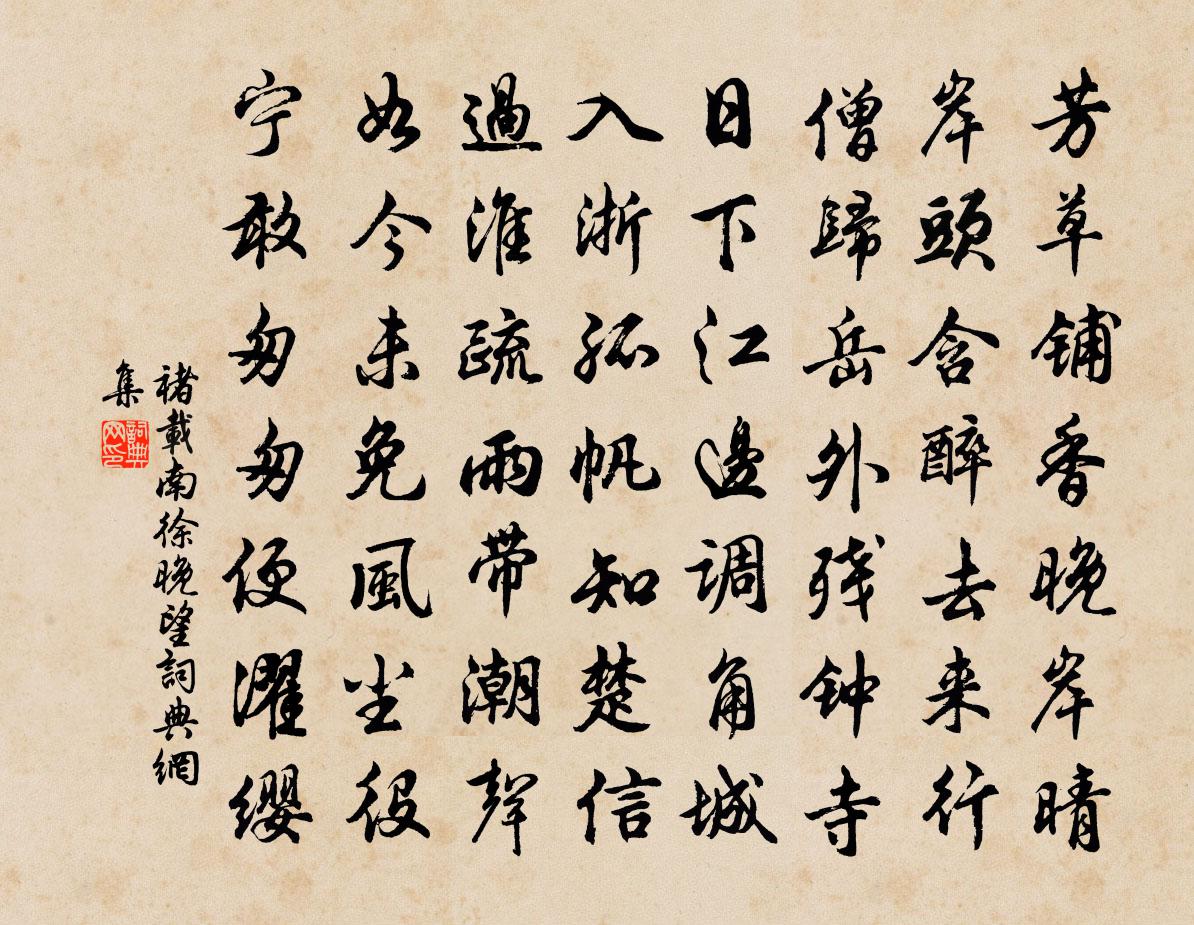 芳草铺香晚岸晴
岸頭含醉去来行
僧歸岳外残钟寺
日下江邊调角城
入浙孤帆知楚信
過淮疏雨带潮聲
如今未免風尘役
宁敢匆匆便濯缨
褚載南徐晚望詞典網
集
詞典网印